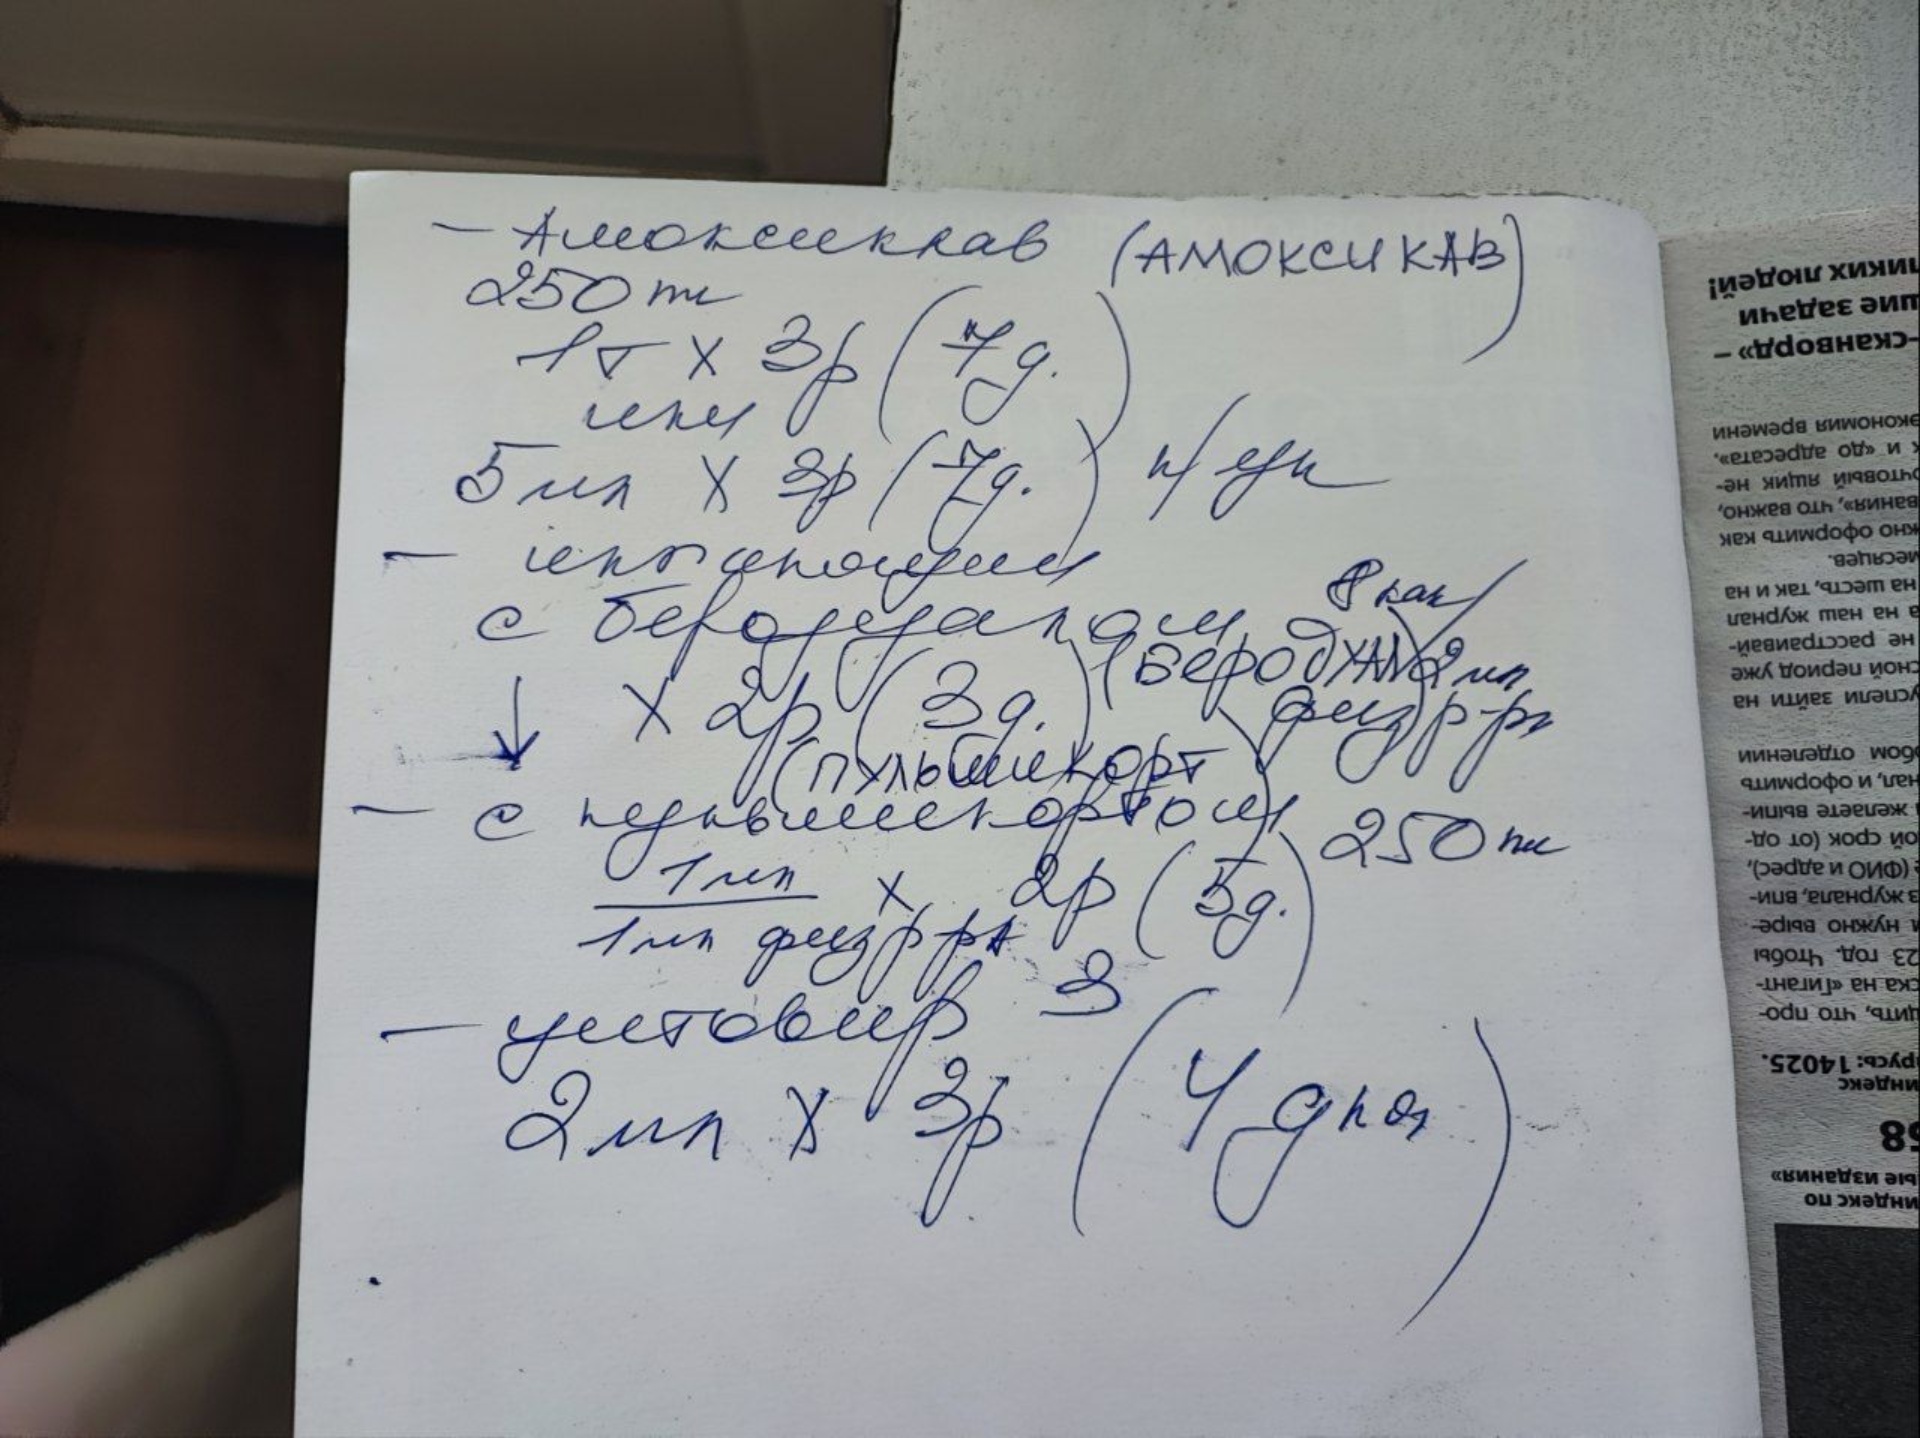 - Амоксиклав (АМОКСИКАВ)
250 мг
1т х 3р (7д.)
или
5мл х 3р (7д.) п/еды
- ингаляции
с беродуалом (БЕРОДУАЛ) 8 кап/2мл физр-ра
↓ х 2р (3д.)
(ПУЛЬМИКОРТ)
- с пульмикортом 250 мг
1мл/1мл физ р-ра х 2р (5д.)
- 3
2мл х 3р (4 дня)
ликих людей!
шие задачи
-сканворд» –
экономия времени
к и «до адресата».
очтовый ящик не-
вания», что важно,
жно оформить как
месяцев.
на шесть, так и на
а на наш журнал
не расстраивай-
сной период уже
успели зайти на
бом отделении
нал, и оформить
и желаете выпи-
ой срок (от од-
е (ФИО и адрес),
з журнала, впи-
и нужно выре-
23 год. Чтобы
ска на «Гигант-
дить, что про-
русь: 14025.
индекс
58
ые издания»
индекс по